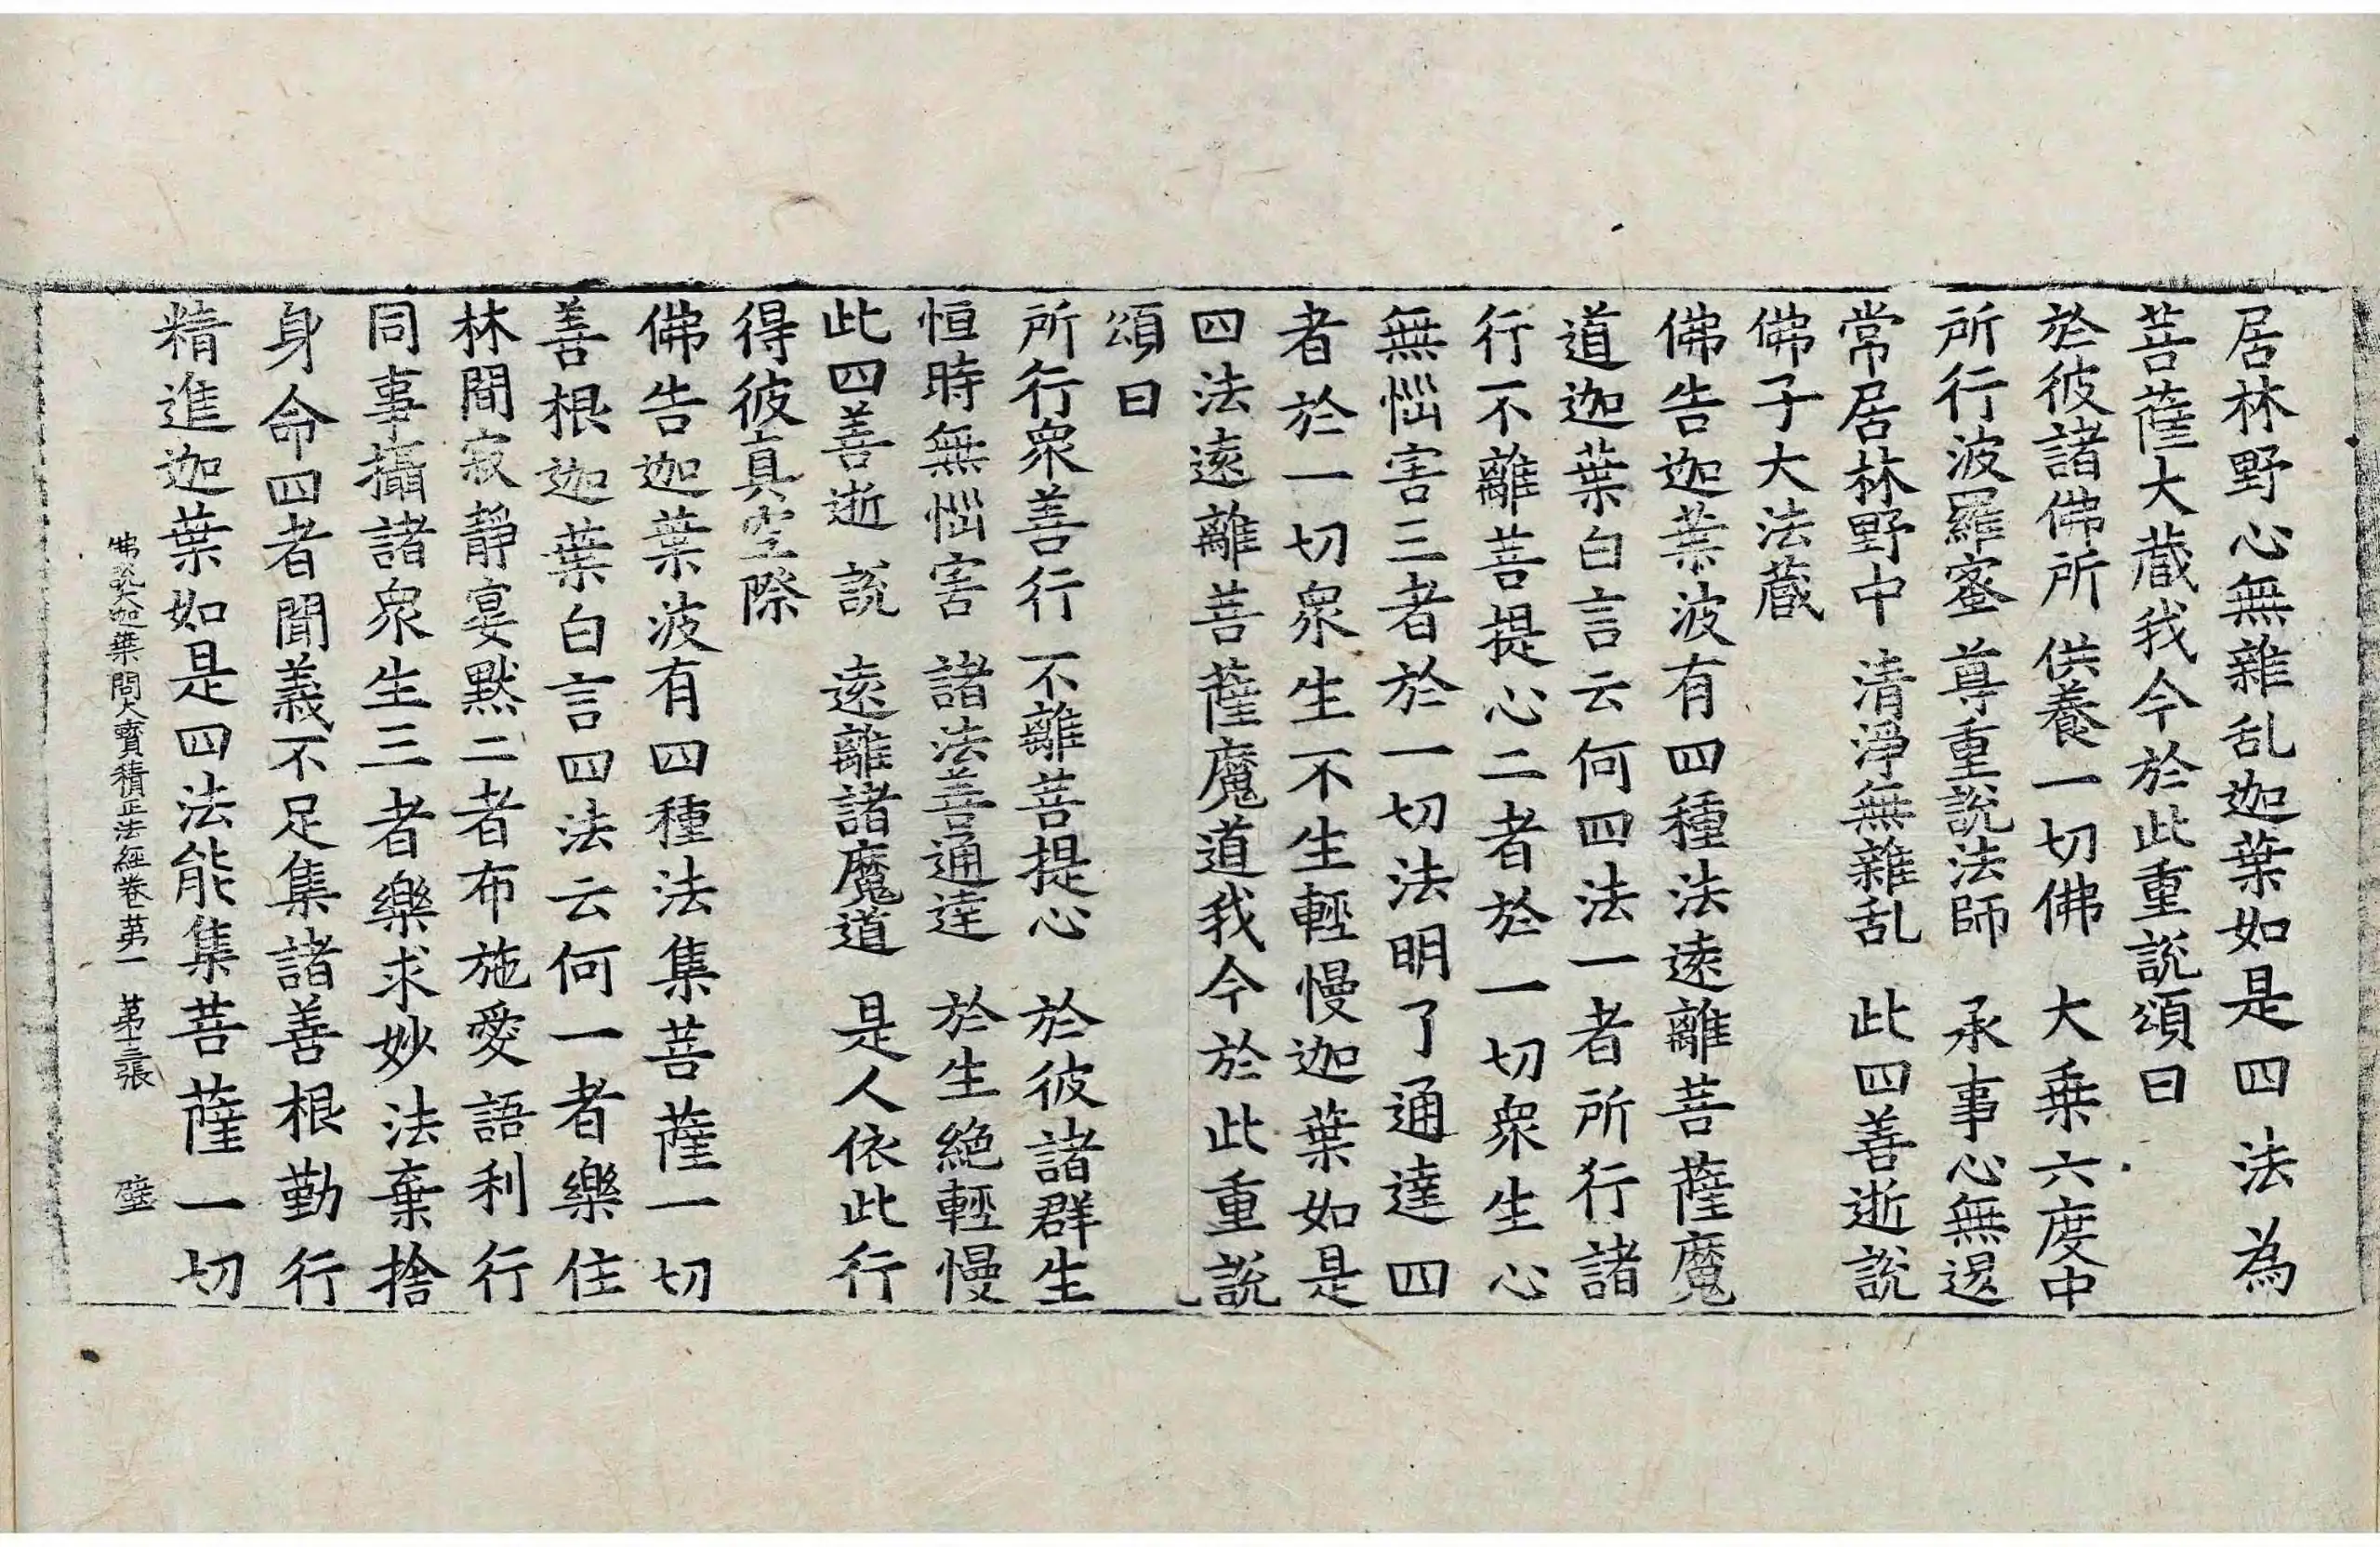 居林野心無雜乱迦葉如是四法為
菩薩大藏我今於此重說頌曰
於彼諸佛所　供養一切佛　大乗六度中
所行波羅蜜　尊重說法師　承事心無退
常居林野中　清淨無雜乱　此四善逝說
佛子大法藏
佛告迦葉波有四種法遠離菩薩魔
道迦葉白言云何四法一者所行諸
行不離菩提心二者於一切衆生心
無惱害三者於一切法明了通達四
者於一切衆生不生輕慢迦葉如是
四法遠離菩薩魔道我今於此重說
頌曰
所行衆善行　不離菩提心　於彼諸群生
恒時無惱害　諸法善通達　於生絕輕慢
此四善逝說　遠離諸魔道　是人依此行
得彼真空際
佛告迦葉波有四種法集菩薩一切
善根迦葉白言四法云何一者樂住
林間寂靜宴默二者布施愛語利行
同事攝諸衆生三者樂求妙法棄捨
身命四者聞義不足集諸善根勤行
精進迦葉如是四法能集菩薩一切
佛說大迦葉問大寶積正法經卷苐一　苐十三張　璧